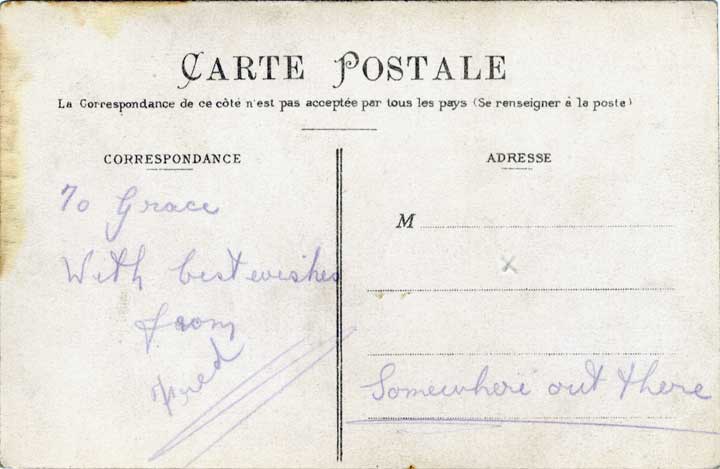 CARTE POSTALE
La Correspondance de ce côté n'est pas acceptée par tous les pays (Se renseigner à la poste)
CORRESPONDANCE
To Grace
With best wishes
from
Fred
ADRESSE
M
x
Somewhere out there